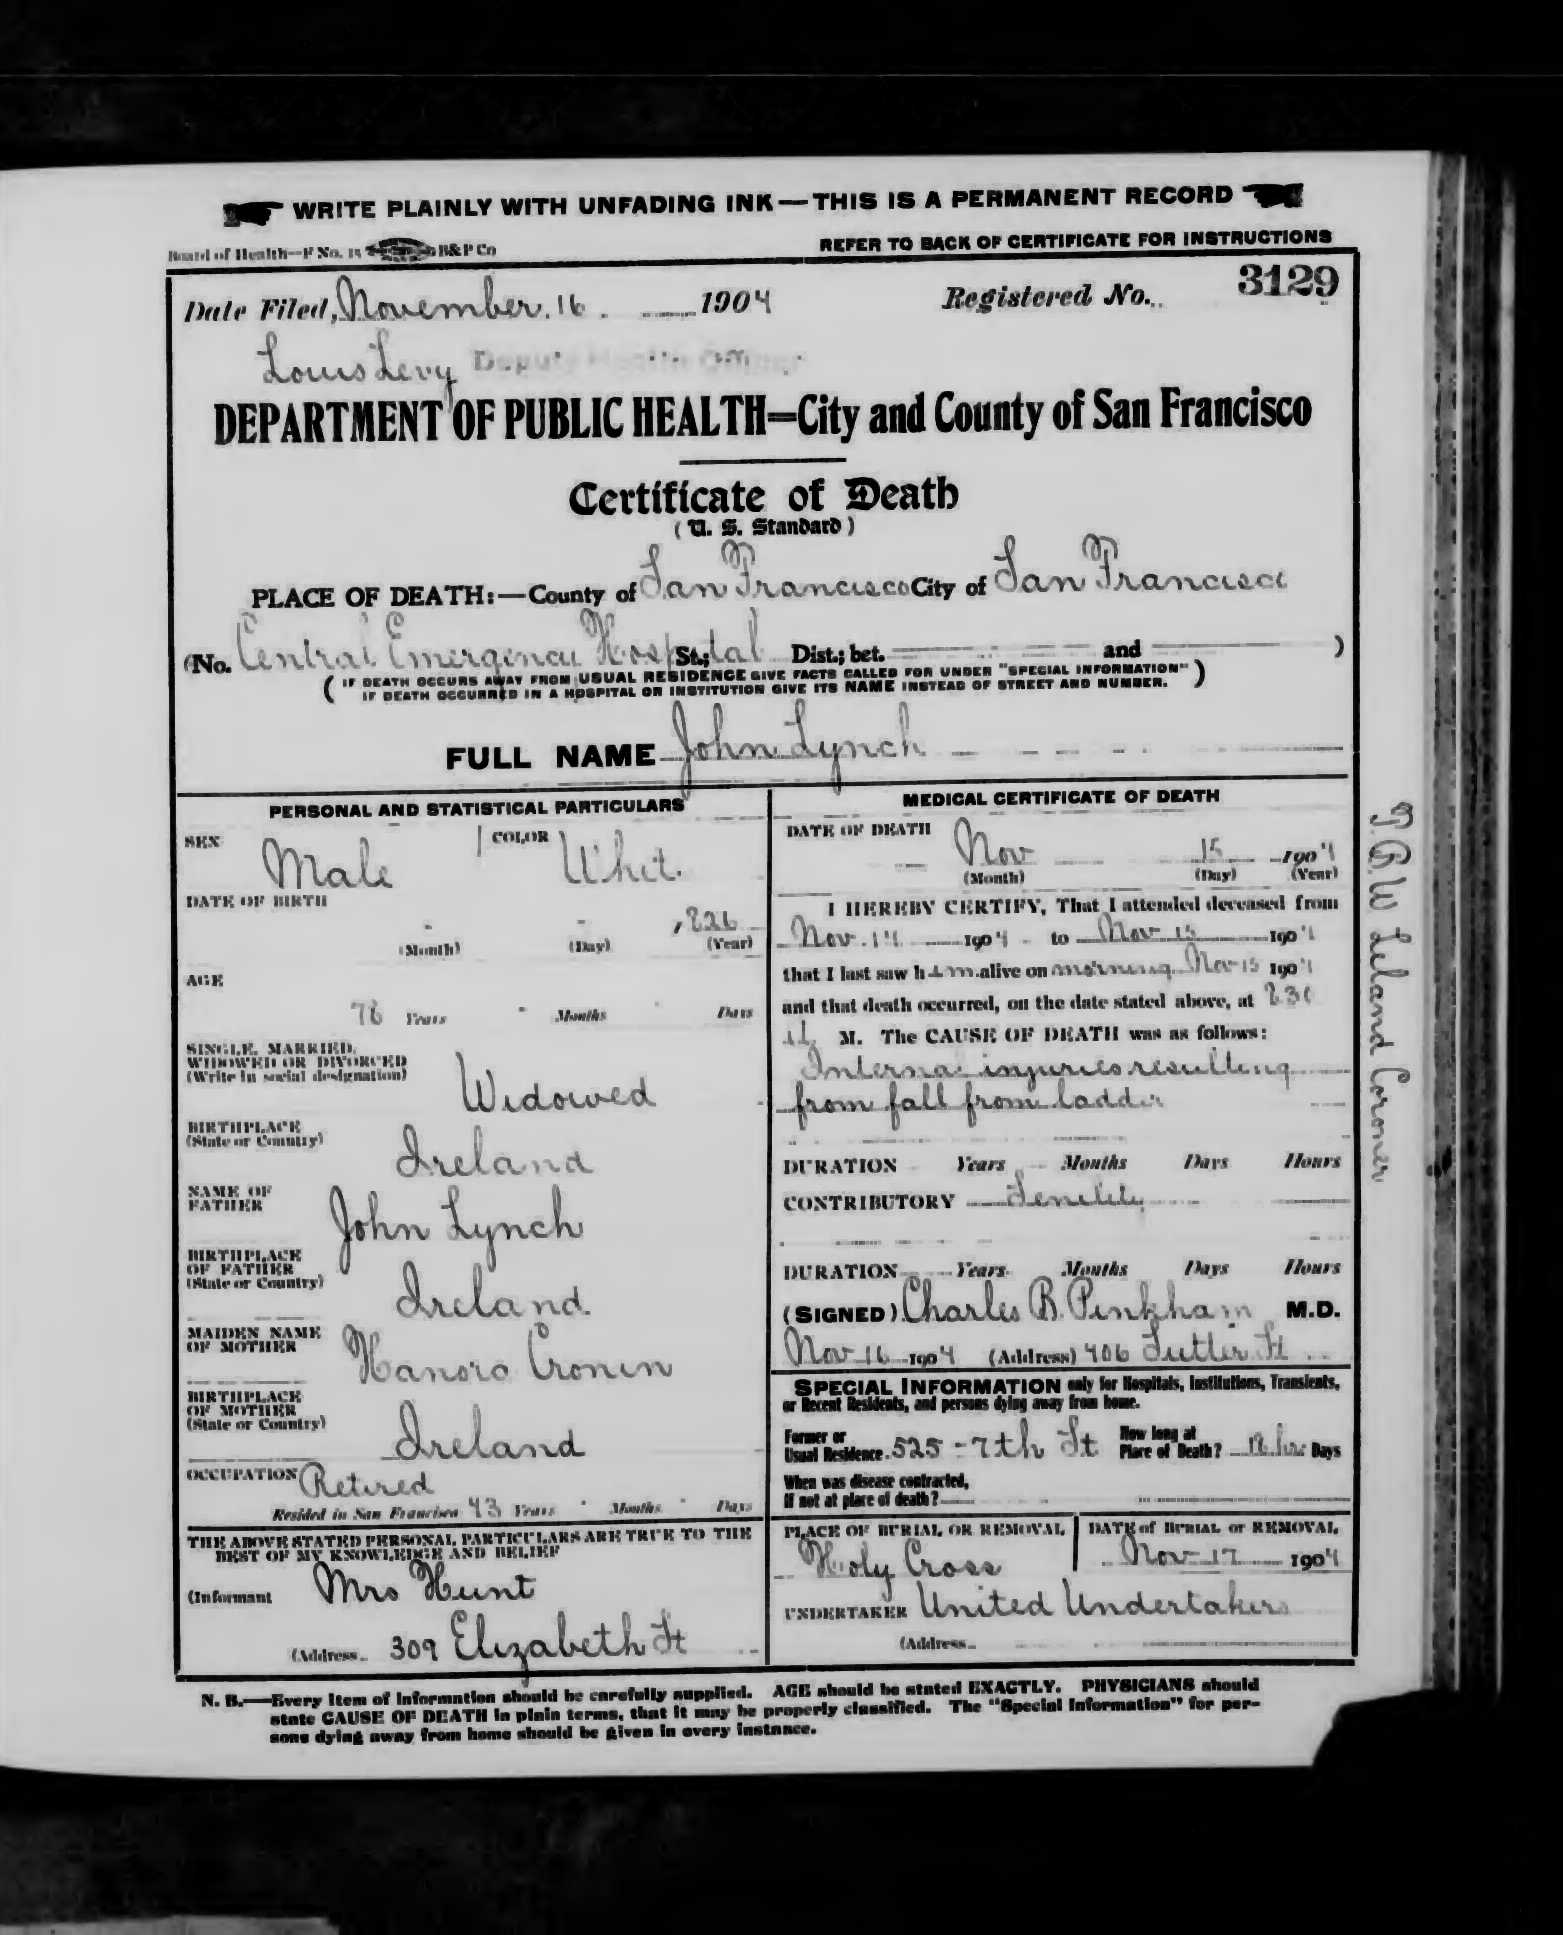 WRITE PLAINLY WITH UNFADING INK—THIS IS A PERMANENT RECORD
Board of Health—F No. 15 B&P Co
REFER TO BACK OF CERTIFICATE FOR INSTRUCTIONS
Date Filed, November. 16. 1904 Registered No. 3129
Louis Levy Deputy Health Officer
DEPARTMENT OF PUBLIC HEALTH=City and County of San Francisco
Certificate of Death
(U. S. Standard)
PLACE OF DEATH:—County of San Francisco City of San Francisco
(No. Central Emergency Hospital St.; Dist.; bet. and )
(IF DEATH OCCURS AWAY FROM USUAL RESIDENCE GIVE FACTS CALLED FOR UNDER "SPECIAL INFORMATION"
IF DEATH OCCURRED IN A HOSPITAL OR INSTITUTION GIVE ITS NAME INSTEAD OF STREET AND NUMBER.)
FULL NAME John Lynch
PERSONAL AND STATISTICAL PARTICULARS
SEX Male COLOR Whit.
DATE OF BIRTH
1826
(Month) (Day) (Year)
AGE
78 Years Months Days
SINGLE, MARRIED,
WIDOWED OR DIVORCED
(Write in social designation) Widowed
BIRTHPLACE
(State or Country) Ireland
NAME OF
FATHER John Lynch
BIRTHPLACE
OF FATHER
(State or Country) Ireland.
MAIDEN NAME
OF MOTHER Hanora Cronin
BIRTHPLACE
OF MOTHER
(State or Country) Ireland
OCCUPATION Retired
Resided in San Francisco 43 Years Months Days
THE ABOVE STATED PERSONAL PARTICULARS ARE TRUE TO THE
BEST OF MY KNOWLEDGE AND BELIEF
(Informant Mrs Hunt
(Address 309 Elizabeth St
MEDICAL CERTIFICATE OF DEATH
DATE OF DEATH
Nov 15 1904
(Month) (Day) (Year)
I HEREBY CERTIFY, That I attended deceased from
Nov. 14 1904 to Nov 15 1904
that I last saw him alive on morning Nov 15 1904
and that death occurred, on the date stated above, at 830
M. The CAUSE OF DEATH was as follows:
Internal injuries resulting
from fall from ladder
DURATION Years Months Days Hours
CONTRIBUTORY Senility
DURATION Years Months Days Hours
(SIGNED) Charles B. Pinkham M.D.
Nov 16 1904 (Address) 406 Sutter St
SPECIAL INFORMATION only for Hospitals, Institutions, Transients,
or Recent Residents, and persons dying away from home.
Former or
Usual Residence 525 - 7th St How long at
Place of Death? hrs Days
When was disease contracted,
If not at place of death?
PLACE OF BURIAL OR REMOVAL DATE of BURIAL or REMOVAL
Holy Cross Nov 17 1904
UNDERTAKER United Undertakers
(Address
T. B. W Leland Coroner
N. B.—Every item of information should be carefully supplied. AGE should be stated EXACTLY. PHYSICIANS should
state CAUSE OF DEATH in plain terms, that it may be properly classified. The "Special Information" for per-
sons dying away from home should be given in every instance.